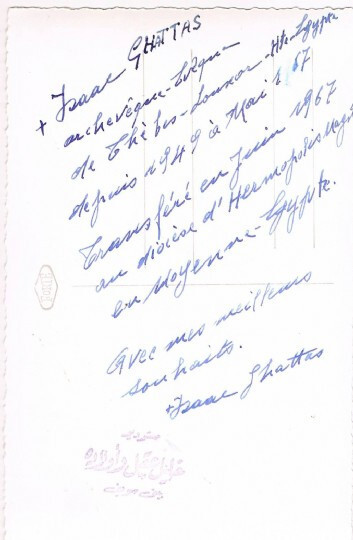 + Isaac GHATTAS
archevêque-Evêque
de Thèbes-Louxor-Hte Egypte
depuis 1949 à Mai 1967
Transféré en Juin 1967
au diocèse d'Hermopolis Magna
en Moyenne-Egypte.
Avec mes meilleurs
souhaits.
+ Isaac Ghattas
ستوديو
وأولاده
بنى سويف